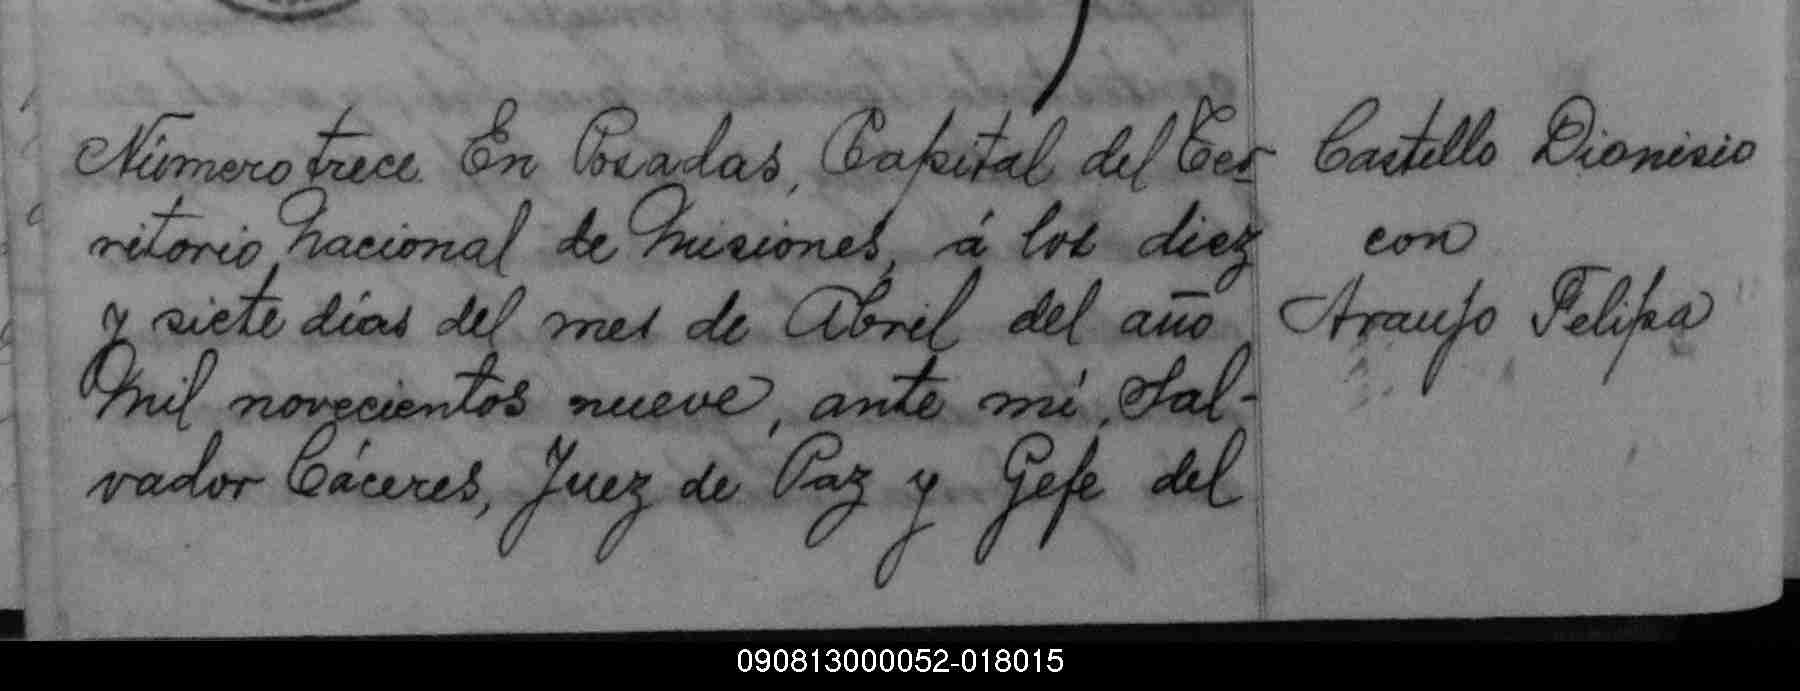 Número trece. En Posadas, Capital del Ter-
ritorio Nacional de Misiones, á los diez
y siete días del mes de Abril del año
Mil novecientos nueve, ante mí, Sal-
vador Cáceres, Juez de Paz y Gefe del
Castello Dionisio
con
Araujo Felipa
090813000052-018015